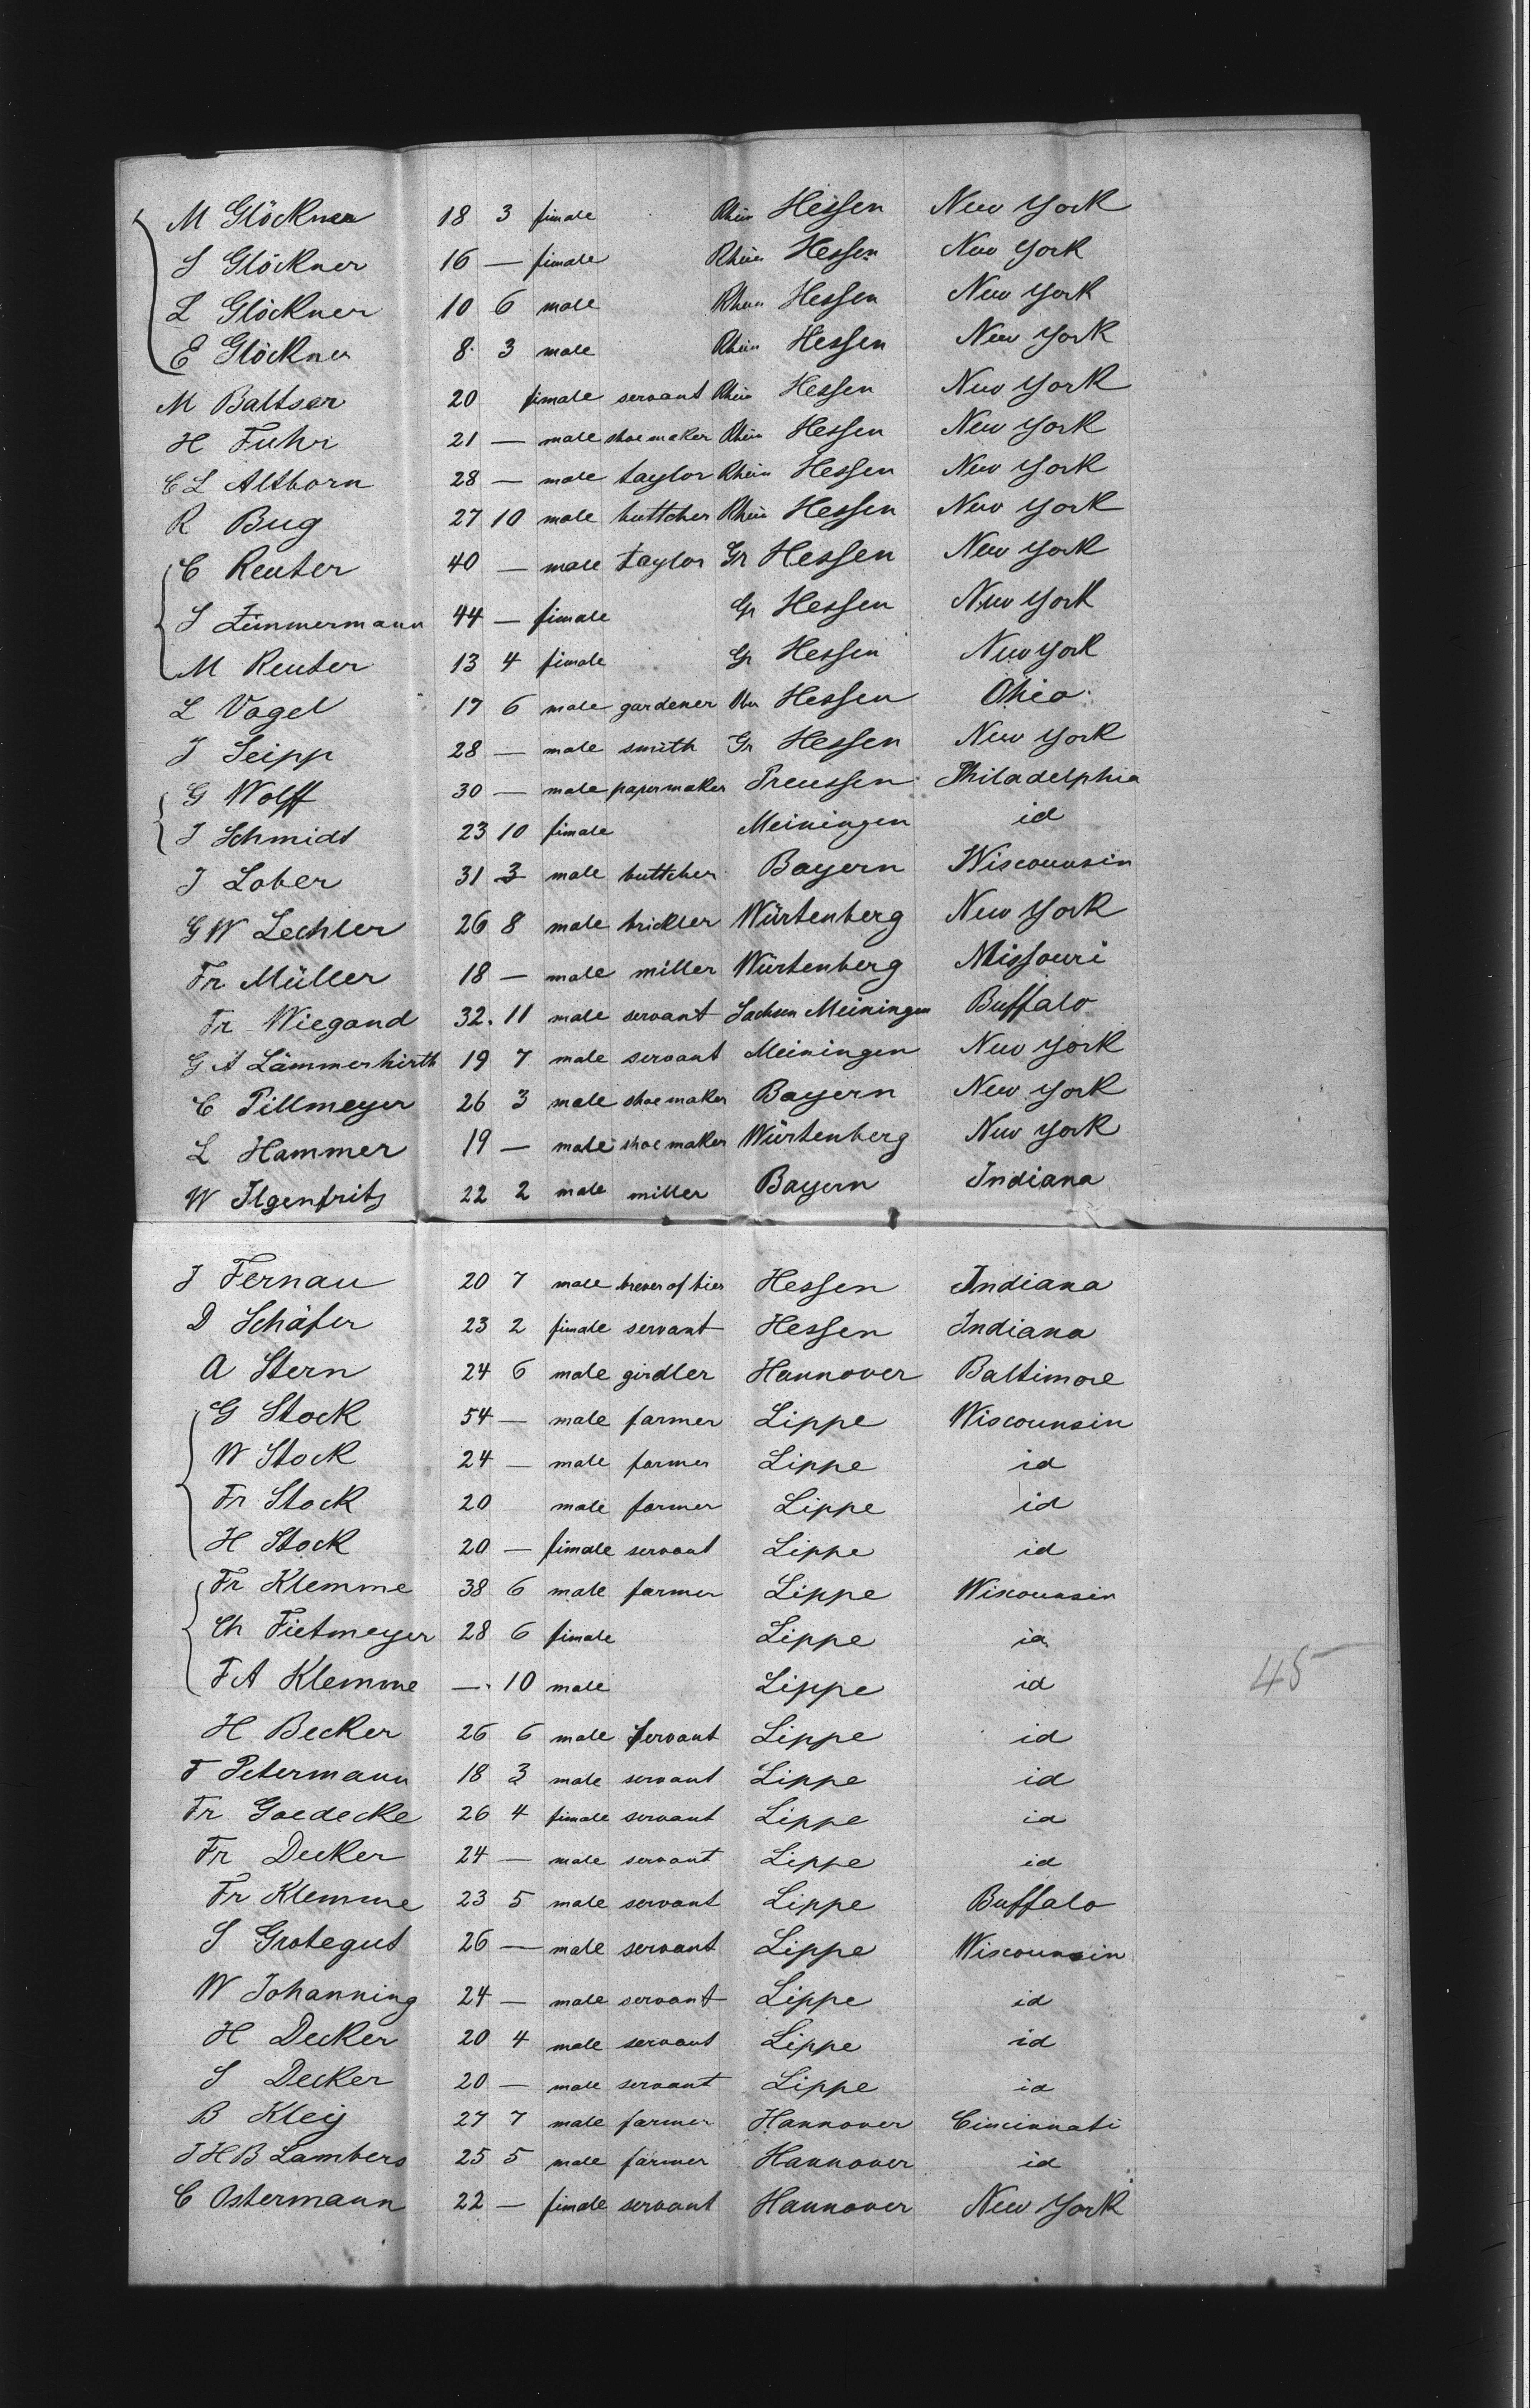 M Glöckner 18 3 fimale Rhein Hessen New York
S Glöckner 16 — fimale Rhein Hessen New York
L Glöckner 10 6 male Rhein Hessen New York
E Glöckner 8 3 male Rhein Hessen New York
M Baltser 20 fimale servant Rhein Hessen New York
H Fuhr 21 — male shoemaker Rhein Hessen New York
C L Altborn 28 — male taylor Rhein Hessen New York
R Bug 27 10 male buttcher Rhein Hessen New York
C Reuter 40 — male taylor Gr Hessen New York
S Zimmermann 44 — fimale Gr Hessen New York
M Reuter 13 4 fimale Gr Hessen New York
L Vogel 17 6 male gardener Ober Hessen Ohio
J Seipp 28 — male smith Gr Hessen New York
G Wolff 30 — male papermaker Preussen Philadelphia
J Schmidt 23 10 fimale Meiningen id
J Lober 31 3 male buttcher Bayern Wiscounsin
G W Lechler 26 8 male brickler Würtenberg New York
Fr Müller 18 — male miller Würtenberg Missouri
Fr Wiegand 32. 11 male servant Sachsen Meiningen Buffalo
G A Lämmerhirth 19 7 male servant Meiningen New York
C Pillmeyer 26 3 male shoemaker Bayern New York
L Hammer 19 — male shoemaker Würtenberg New York
W Ilgenfritz 22 2 male miller Bayern Indiana
J Fernau 20 7 male brever of bier Hessen Indiana
D Schäfer 23 2 fimale servant Hessen Indiana
A Stern 24 6 male girdler Hannover Baltimore
G Stock 54 — male farmer Lippe Wiscounsin
W Stock 24 — male farmer Lippe id
Fr Stock 20 male farmer Lippe id
H Stock 20 — fimale servant Lippe id
Fr Klemme 38 6 male farmer Lippe Wiscounsin
Ch Fietmeyer 28 6 fimale Lippe id
F A Klemme —. 10 male Lippe id
45
H Becker 26 6 male servant Lippe id
F Petermann 18 3 male servant Lippe id
Fr Goedecke 26 4 fimale servant Lippe id
Fr Decker 24 — male servant Lippe id
Fr Klemme 23 5 male servant Lippe Buffalo
S Grotegut 26 — male servant Lippe Wiscounsin
W Johanning 24 — male servant Lippe id
H Decker 20 4 male servant Lippe id
S Decker 20 — male servant Lippe id
B Kleij 27 7 male farmer Hannover Cincinnati
J H B Lambers 25 5 male farmer Hannover id
C Ostermann 22 — fimale servant Hannover New York